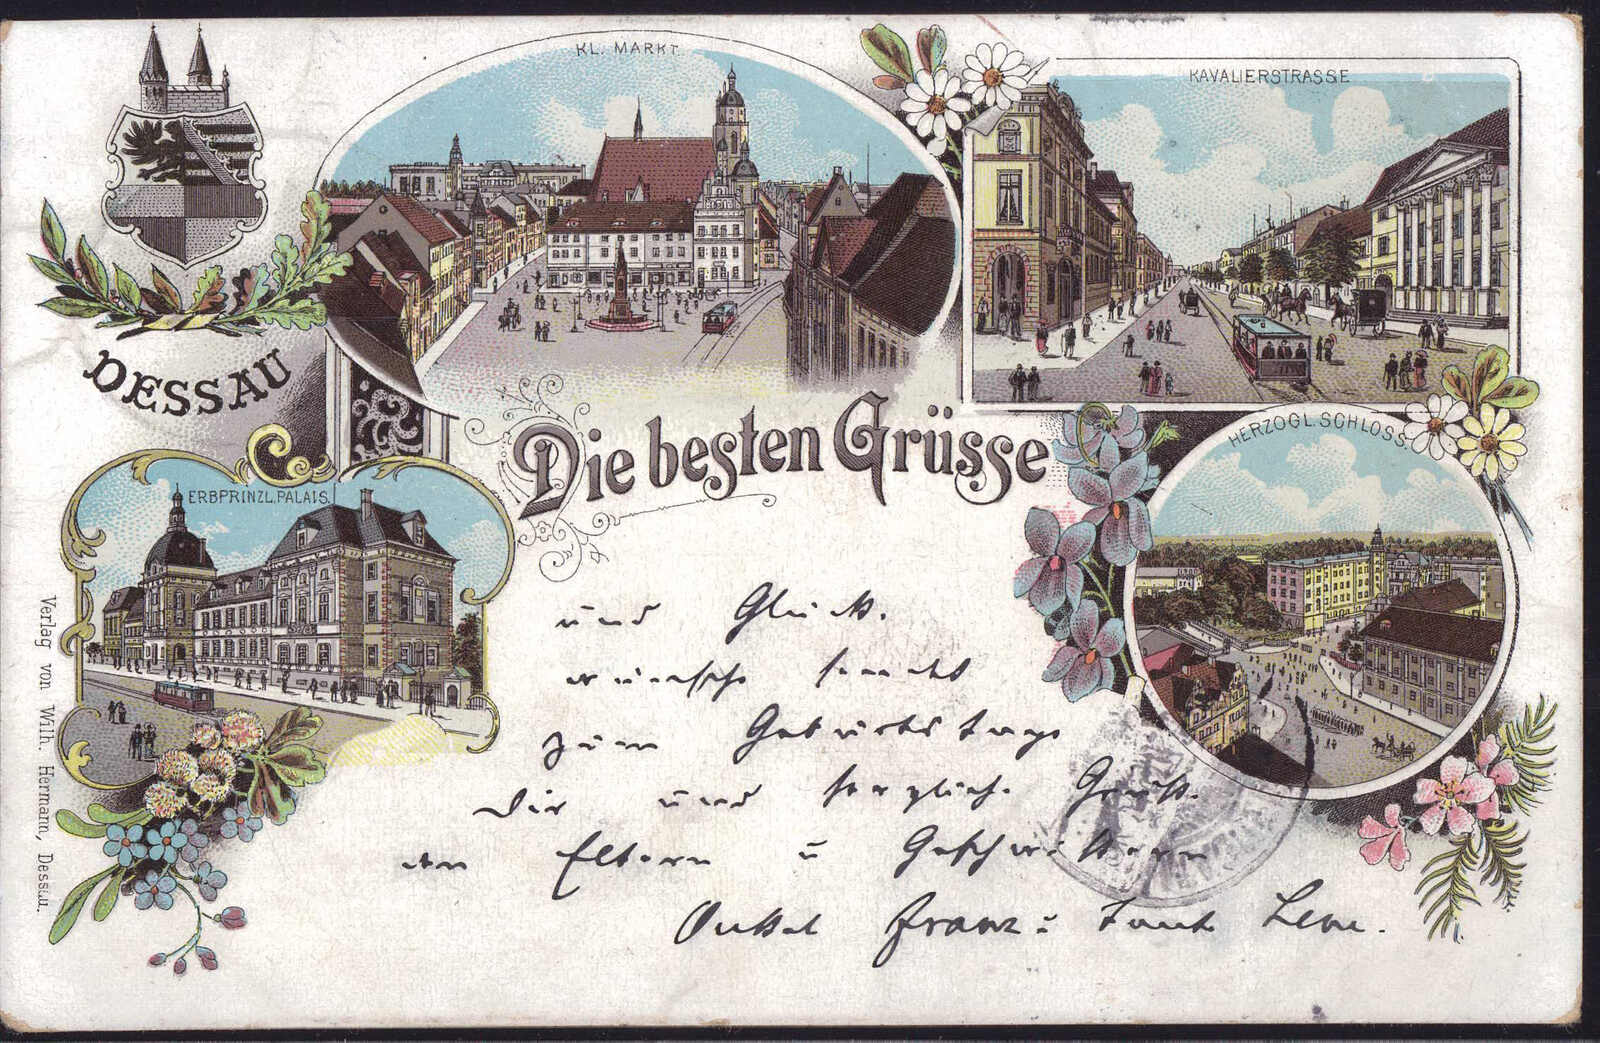 KL. MARKT.
KAVALIERSTRASSE
DESSAU
Die besten Grüsse
HERZOGL. SCHLOSS.
ERBPRINZL. PALAIS.
und Glück.
wünsche sendet
zum Geburtstage
Dir und herzlich. Gruß.
an Eltern u Geschwistern
Onkel Franz u Tante Lene.
Verlag von Wilh. Hermann, Dessau.